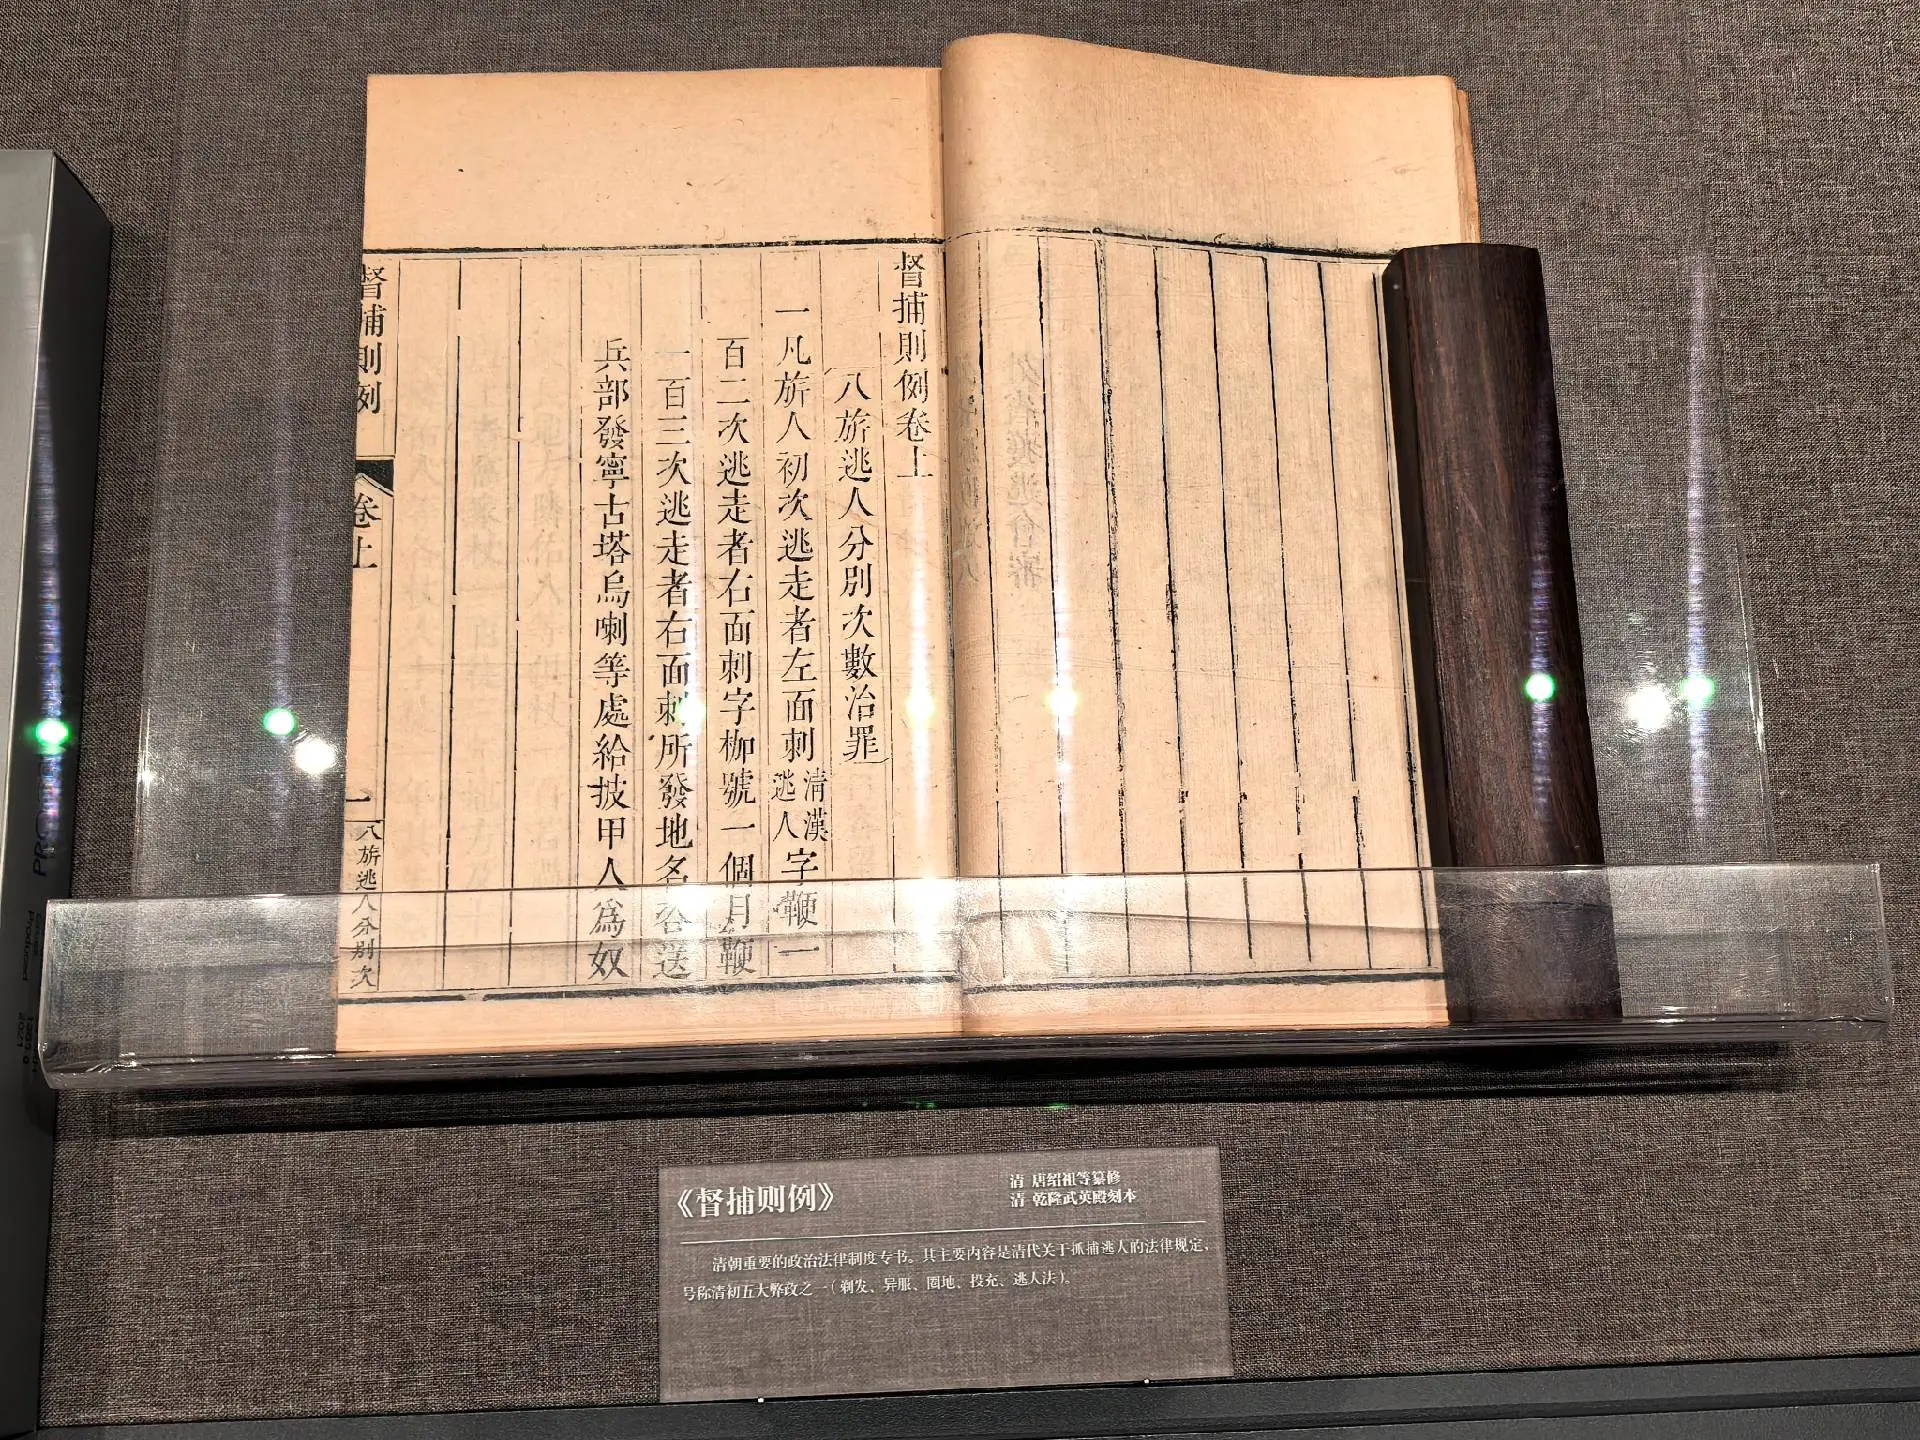 督捕則例卷上
八旂逃人分别次數治罪
一凡旂人初次逃走者左面刺清漢逃人字鞭一
百二次逃走者右面刺字枷號一個月鞭
一百三次逃走者右面刺所發地名咨送
兵部發寧古塔烏喇等處給披甲人爲奴
督捕則例
卷上
一
八旂逃人分别次
《督捕则例》
清 唐绍祖等纂修
清 乾隆武英殿刻本
清朝重要的政治法律制度专书。其主要内容是清代关于抓捕逃人的法律规定，
号称清初五大弊政之一（剃发、异服、圈地、投充、逃人法）。